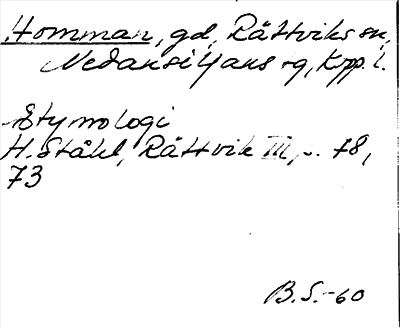 Homman, gd, Rättviks sn,
Nedansiljans tg, Kpp. l.
Etymologi
H. Ståhl, Rättvik III, s. 78,
73
B.S.-60